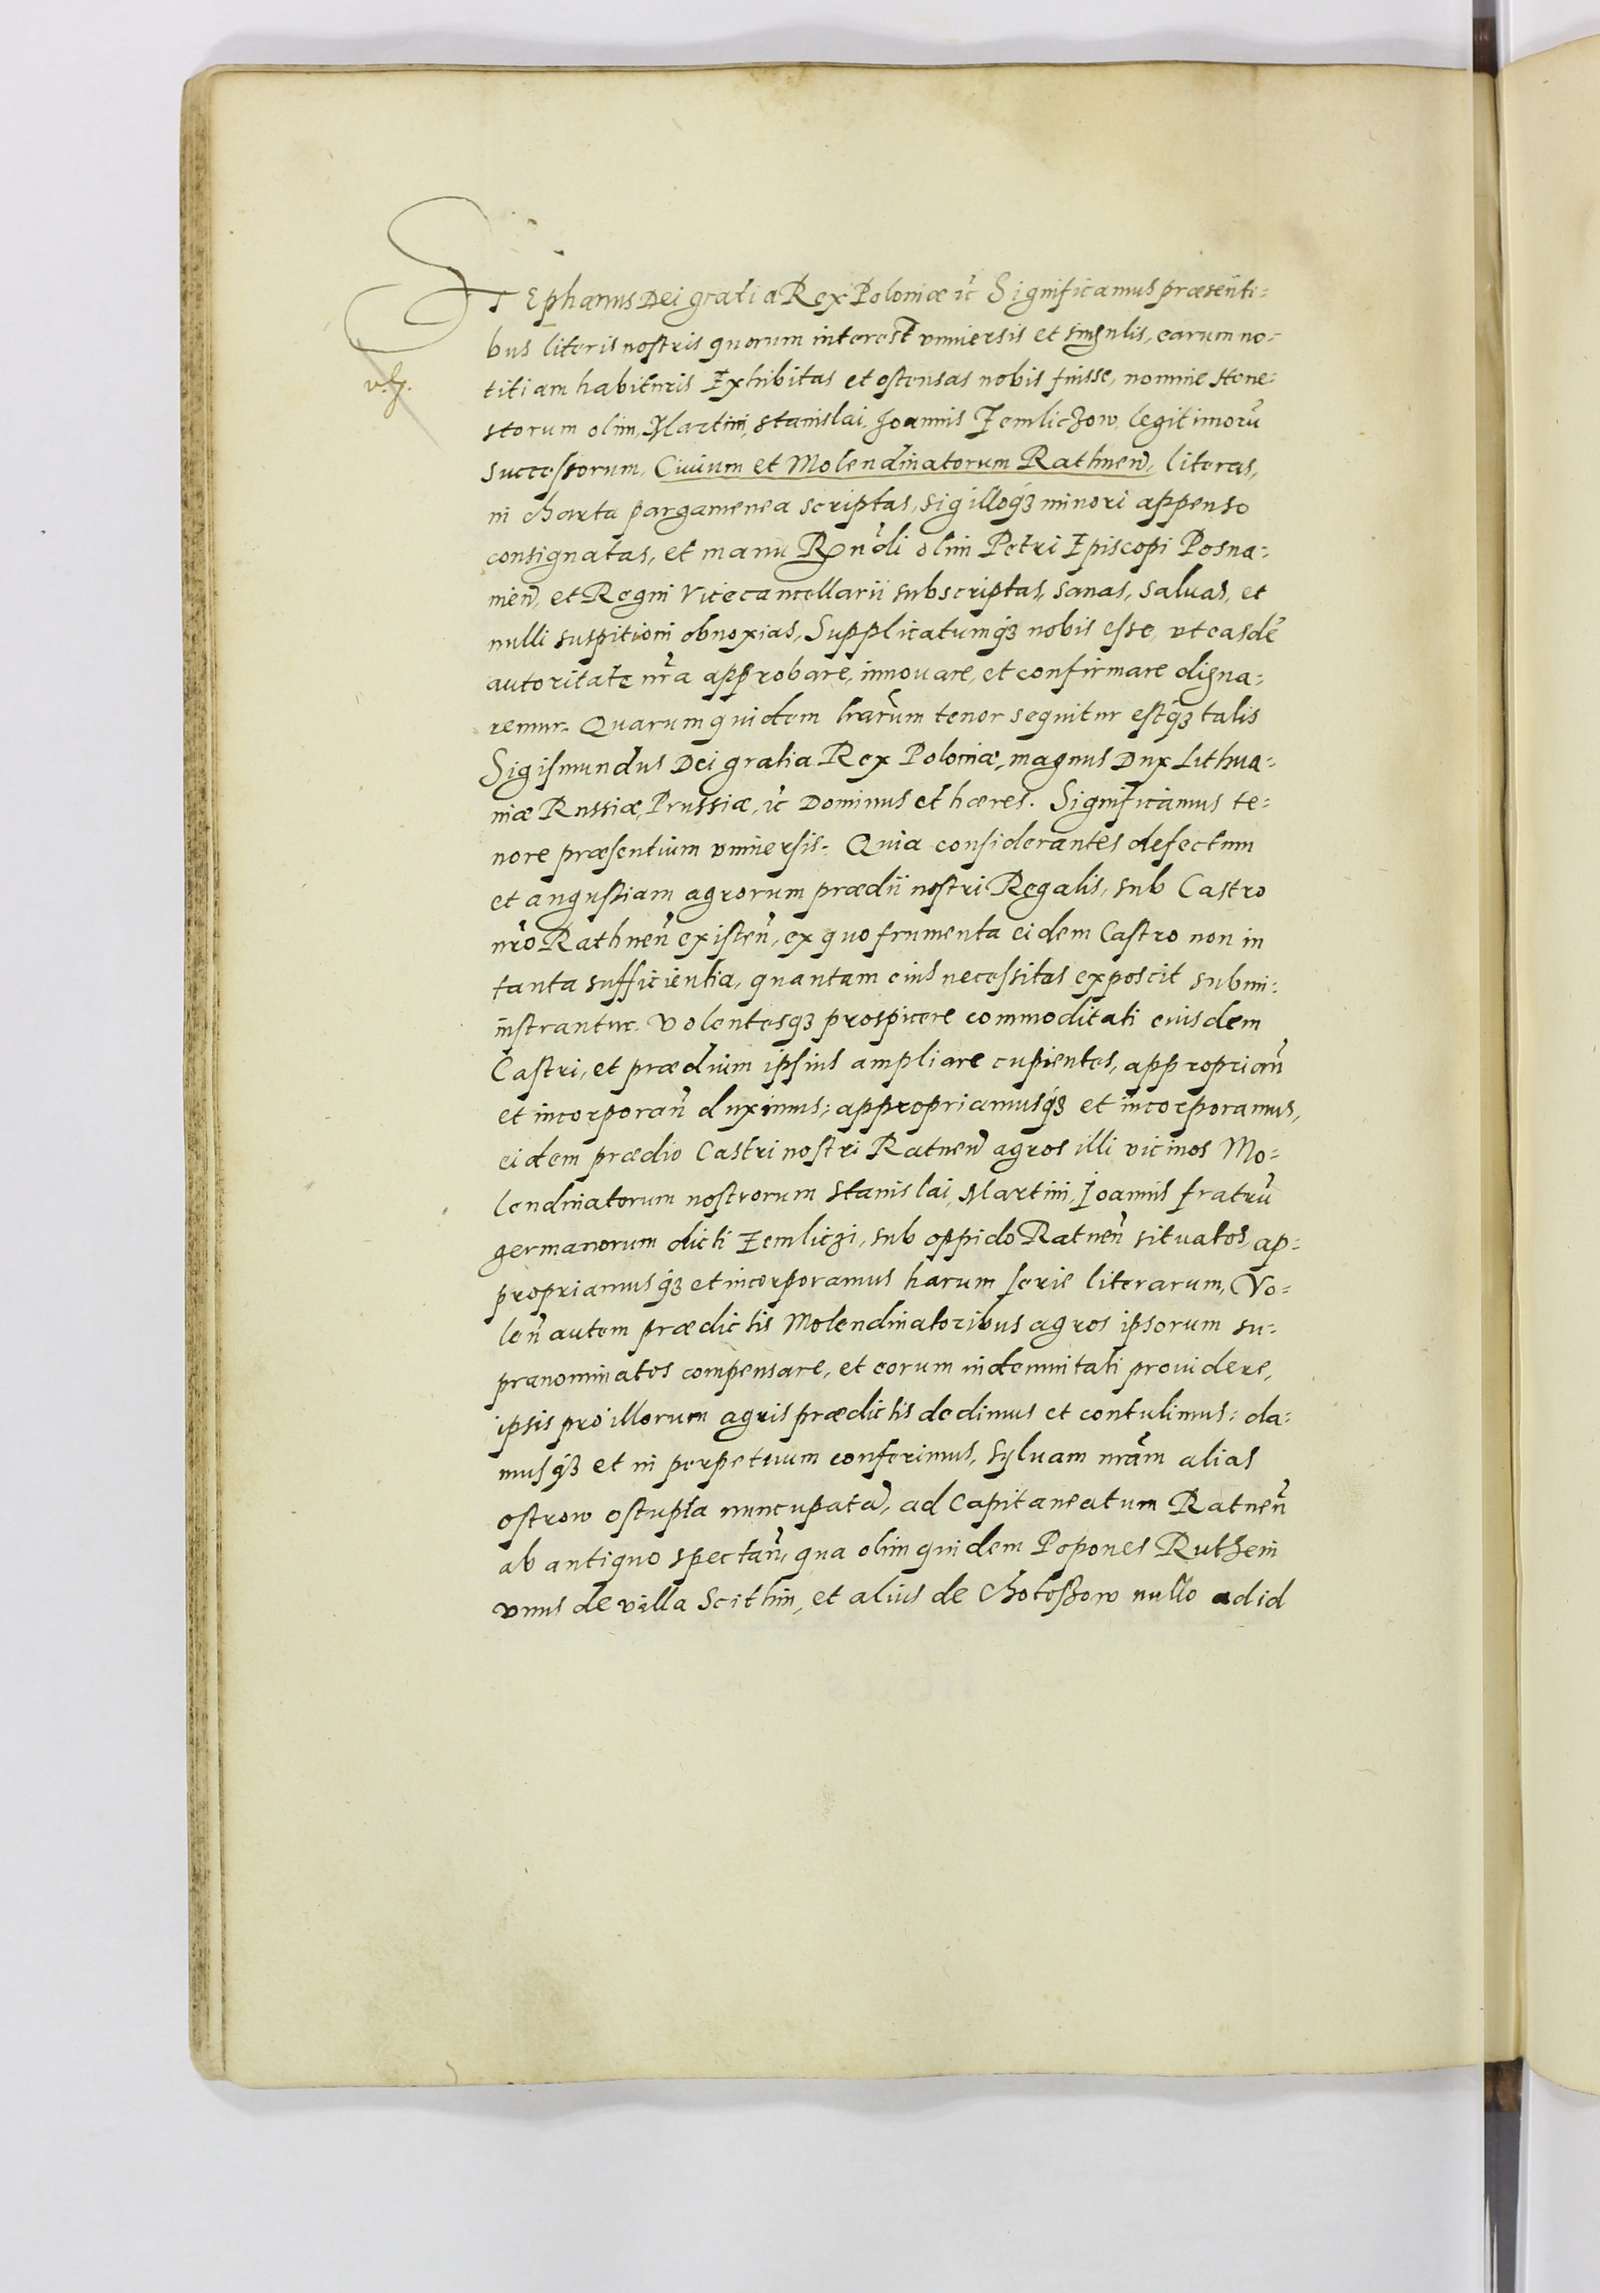 STEphanus Dei gratia Rex Poloniæ ꝛc Significamus præsenti=
bus literis nostris quorum interest vniuersis et singulis, earum no=
titiam habituris Exhibitas et ostensas nobis fuisse, nomine Hone=
storum olim, Martini, Stanislai, Joannis Zemliczow, legitimorū
successorum, Ciuium et Molendinatorum Rathnen̄, literas,
in charta pargamenea scriptas, sigilloq₃ minori appenso
consignatas, et manu Rn̄di olim Petri Episcopi Posna=
nien̄, et Regni Vicecancellarii subscriptas, sanas, saluas, et
nulli suspitioni obnoxias, Supplicatumq₃ nobis esse, vt easdē
autoritate nr̄a approbare, innouare, et confirmare digna=
remur. Quarum quidem lrārum tenor sequitur estq₃ talis
Sigismundus Dei gratia Rex Poloniæ, magnus Dux Lithua=
niæ Russiæ, Prussiæ, ꝛc Dominus et hæres. Significamus te=
nore præsentium vniuersis. Quia considerantes defectum
et angustiam agrorum prædii nostri Regalis, sub Castro
nr̄o Rathnen̄ existen̄, ex quo frumenta eidem Castro non in
tanta sufficientia, quantam eius necessitas exposcit submi=
instrantur. Volentesq₃ prospicere commoditati eiusdem
Castri, et prædium ipsius ampliare cupientes, approprian̄
et incorporan̄ duximus; appropriamusq₃ et incorporamus,
eidem prædio Castri nostri Ratnen̄ agros illi vicinos Mo=
lendinatorum nostrorum Stanislai, Martini, Joannis fratrū
germanorum dicti Zemliczi, sub oppido Ratnen̄ situatos, ap=
propriamusq₃ et incorporamus harum serie literarum, Vo=
len̄ autem prædictis Molendinatoribus agros ipsorum su=
pranominatos compensare, et eorum indemnitati prouidere,
ipsis pro illorum agris prædictis dedimus et contulimus: da=
musq₃ et in perpetuum conferimus, syluam nrām alias
ostrow ostupla nuncupatā, ad Capitaneatum Ratnen̄
ab antiquo spectan̄, qua olim quidem Popones Rutheni
vnus de villa Scithin, et alius de Choteszow nullo ad id